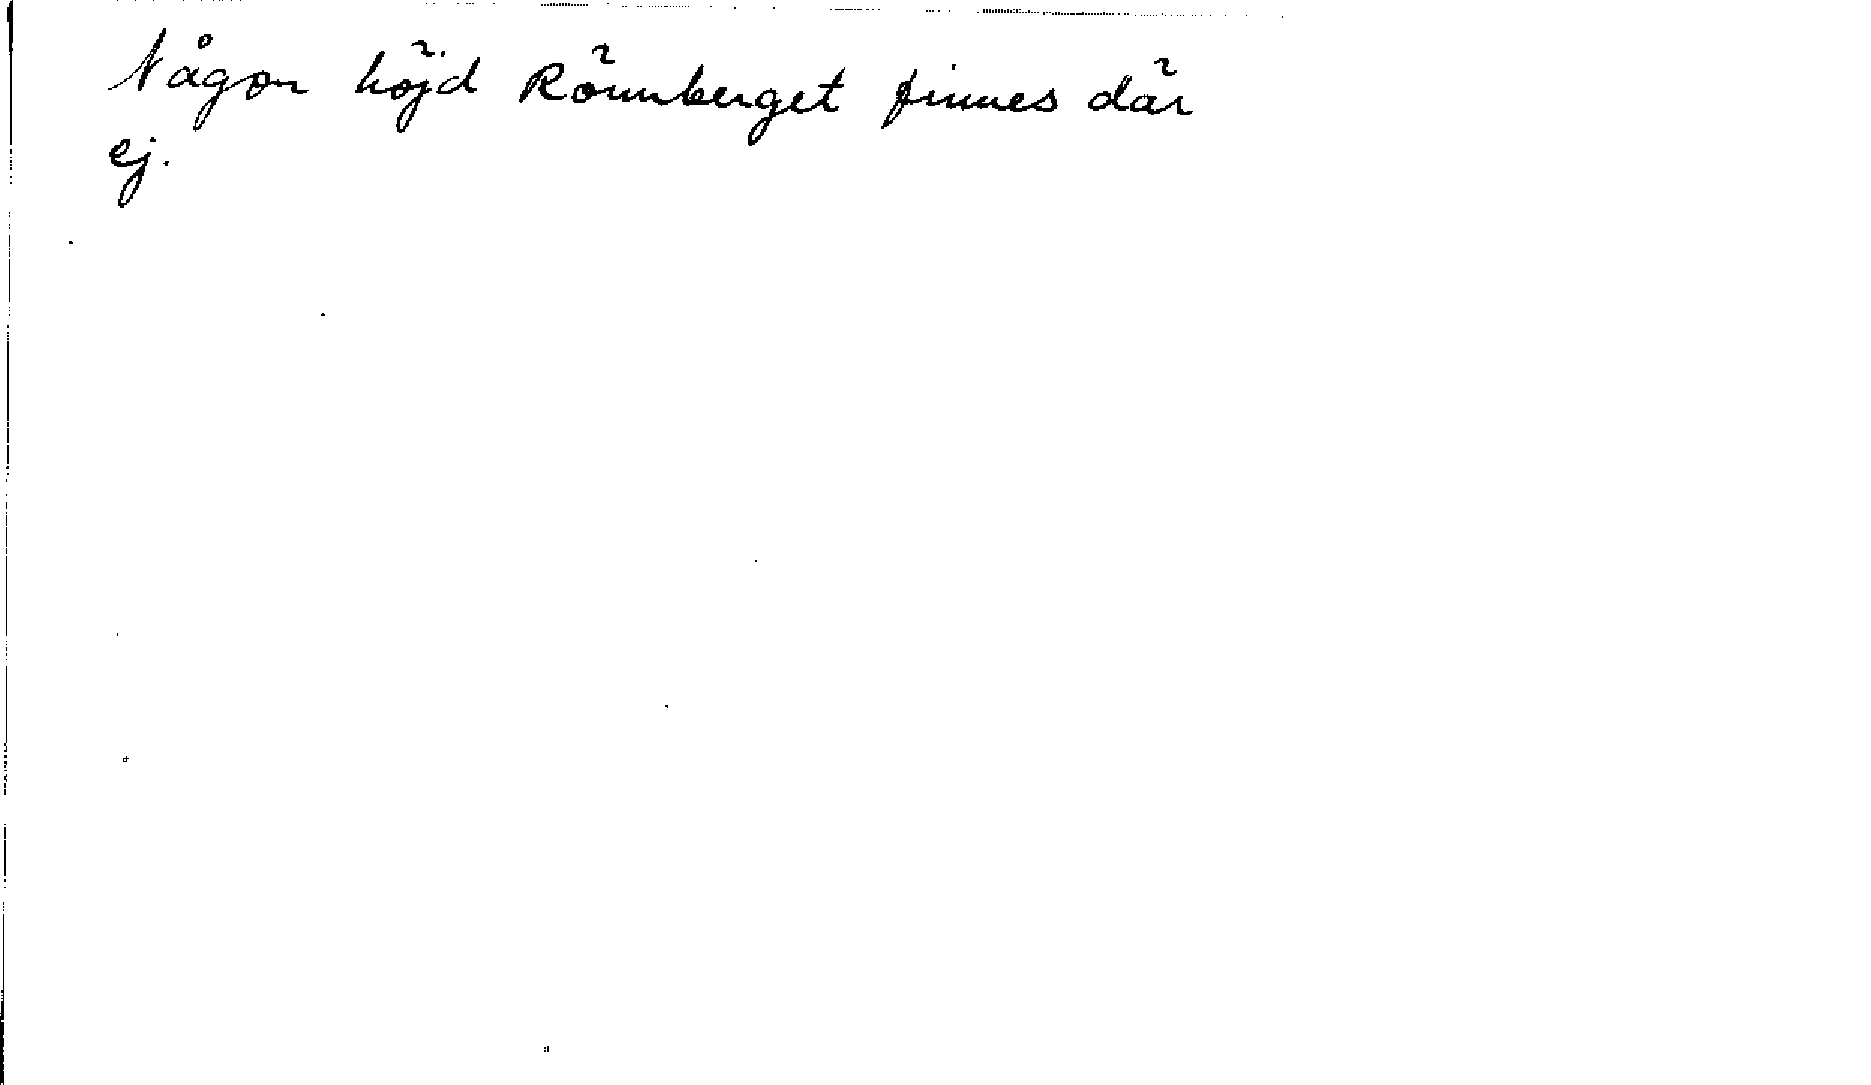 Någon höjd Rönnberget finnes där
ej.